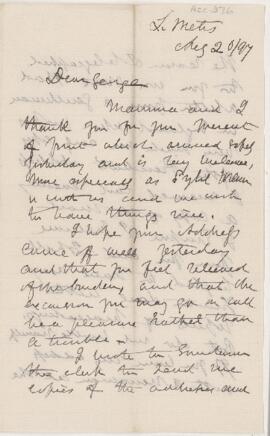 Acc-576
L. Metis
Aug 20/97
Dear George
Mamma and I
thank you for your present
of fruit which arrived safely
yesterday and is very welcome,
more especially as Sybil
is with us and we wish
to have things nice.
I hope your Address
came off well yesterday
and that you feel relieved
of the burden, and that the
excursion you may go on will
be a pleasure rather than
a trouble.
I wrote to
the clerk to send me
copies of the addresses and